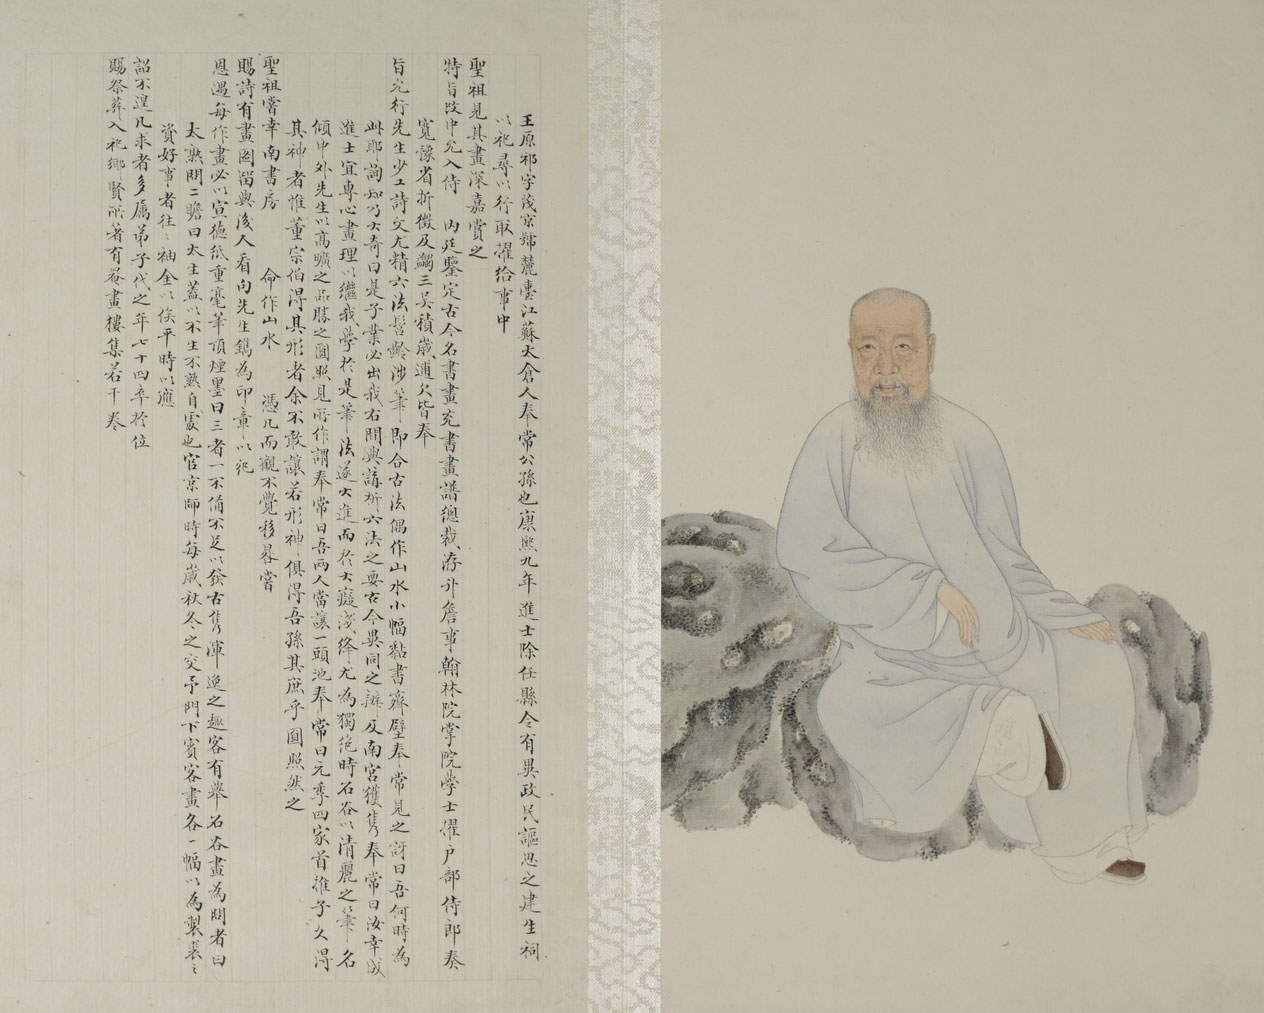 王原祁字茂京號麓臺江蘇太倉人奉常公孫也康熙九年進士除任縣令有異政民謳思之建生祠
以祀尋以行取擢給事中
聖祖見其畫深嘉賞之
特旨改中允入侍 內廷鑒定古今名書畫充書畫譜總裁洊升詹事翰林院掌院學士擢戶部侍郎奏
寬豫省折徵及蠲三吳積歲逋欠皆奉
旨允行先生少工詩文尤精六法髫齡涉筆即合古法偶作山水小幅黏書齋壁奉常見之訝曰吾何時為
此耶詢知乃大奇曰是子業必出我右間與講析六法之要古今異同之辨及南宮獲雋奉常曰汝幸成
進士宜專心畫理以繼我學於是筆法遂大進而於大癡淺絳尤為獨絕時石谷以清麗之筆名
傾中外先生以高曠之品勝之圓照見所作謂奉常曰吾兩人當讓一頭地奉常曰元季四家首推子久得
其神者惟董宗伯得其形者余不敢讓若形神俱得吾孫其庶乎圓照然之
聖祖嘗幸南書房 命作山水 憑几而觀不覺移晷嘗
賜詩有畫圖留與後人看句先生鐫為印章以祀
恩遇每作畫必以宣德紙重毫筆頂煙墨曰三者一不備不足以發古雋渾逸之趣客有舉石谷畫為問者曰
太熟問二瞻曰太生蓋以不生不熟自處也官京師時每歲秋冬之交予門下賓客畫各一幅以為製裘之
資好事者往〻袖金以俟平時以應
詔不遑凡求者多屬弟子代之年七十四卒於位
賜祭葬入祀鄉賢所著有罨畫樓集若干卷